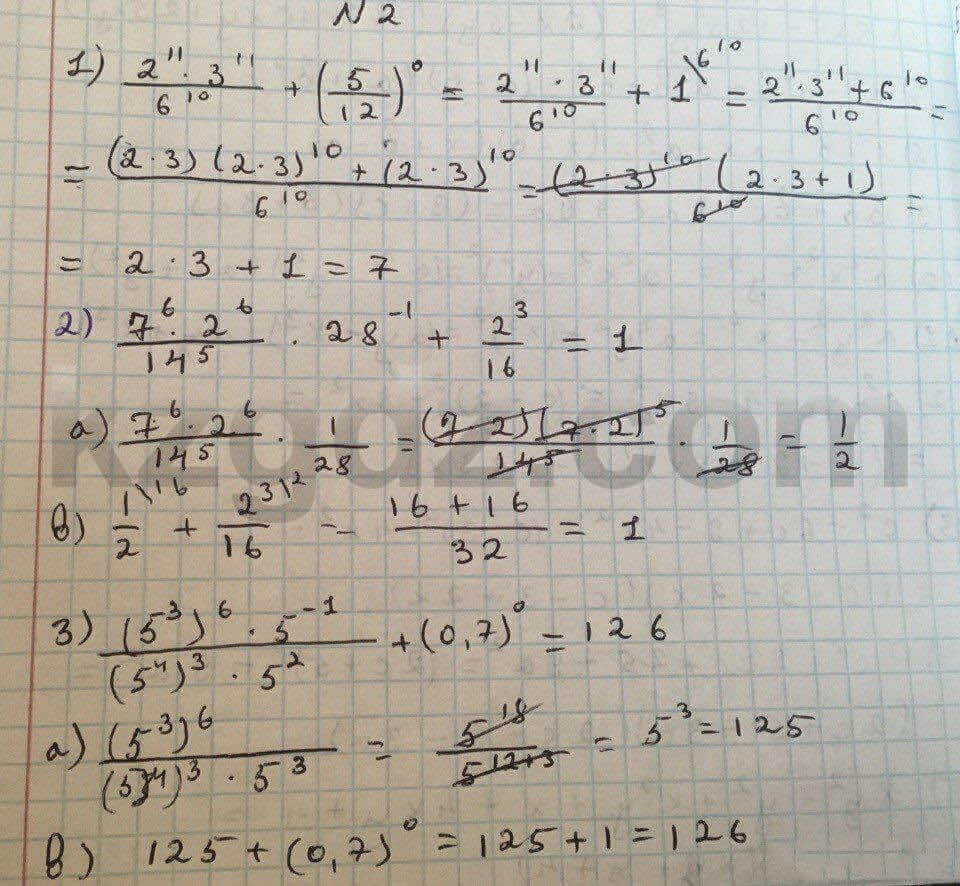 N 2
1) \frac{2^{11} \cdot 3^{11}}{6^{10}} + \left(\frac{5}{12}\right)^0 = \frac{2^{11} \cdot 3^{11}}{6^{10}} + 1^{\backslash 6^{10}} = \frac{2^{11} \cdot 3^{11} + 6^{10}}{6^{10}} =
= \frac{(2 \cdot 3)(2 \cdot 3)^{10} + (2 \cdot 3)^{10}}{6^{10}} = \frac{(2 \cdot 3)^{10} (2 \cdot 3 + 1)}{6^{10}} =
= 2 \cdot 3 + 1 = 7
2) \frac{7^6 \cdot 2^6}{14^5} \cdot 28^{-1} + \frac{2^3}{16} = 1
a) \frac{7^6 \cdot 2^6}{14^5} \cdot \frac{1}{28} = \frac{(7 \cdot 2)(7 \cdot 2)^5}{14^5} \cdot \frac{1}{28} = \frac{1}{2}
kzgdz.com
в) \frac{1^{\backslash 16}}{2} + \frac{2^{3 \backslash 2}}{16} = \frac{16 + 16}{32} = 1
3) \frac{(5^3)^6 \cdot 5^{-1}}{(5^4)^3 \cdot 5^2} + (0,7)^0 = 126
a) \frac{(5^3)^6}{(5^4)^3 \cdot 5^3} = \frac{5^{18}}{5^{12+3}} = 5^3 = 125
в) 125 + (0,7)^0 = 125 + 1 = 126